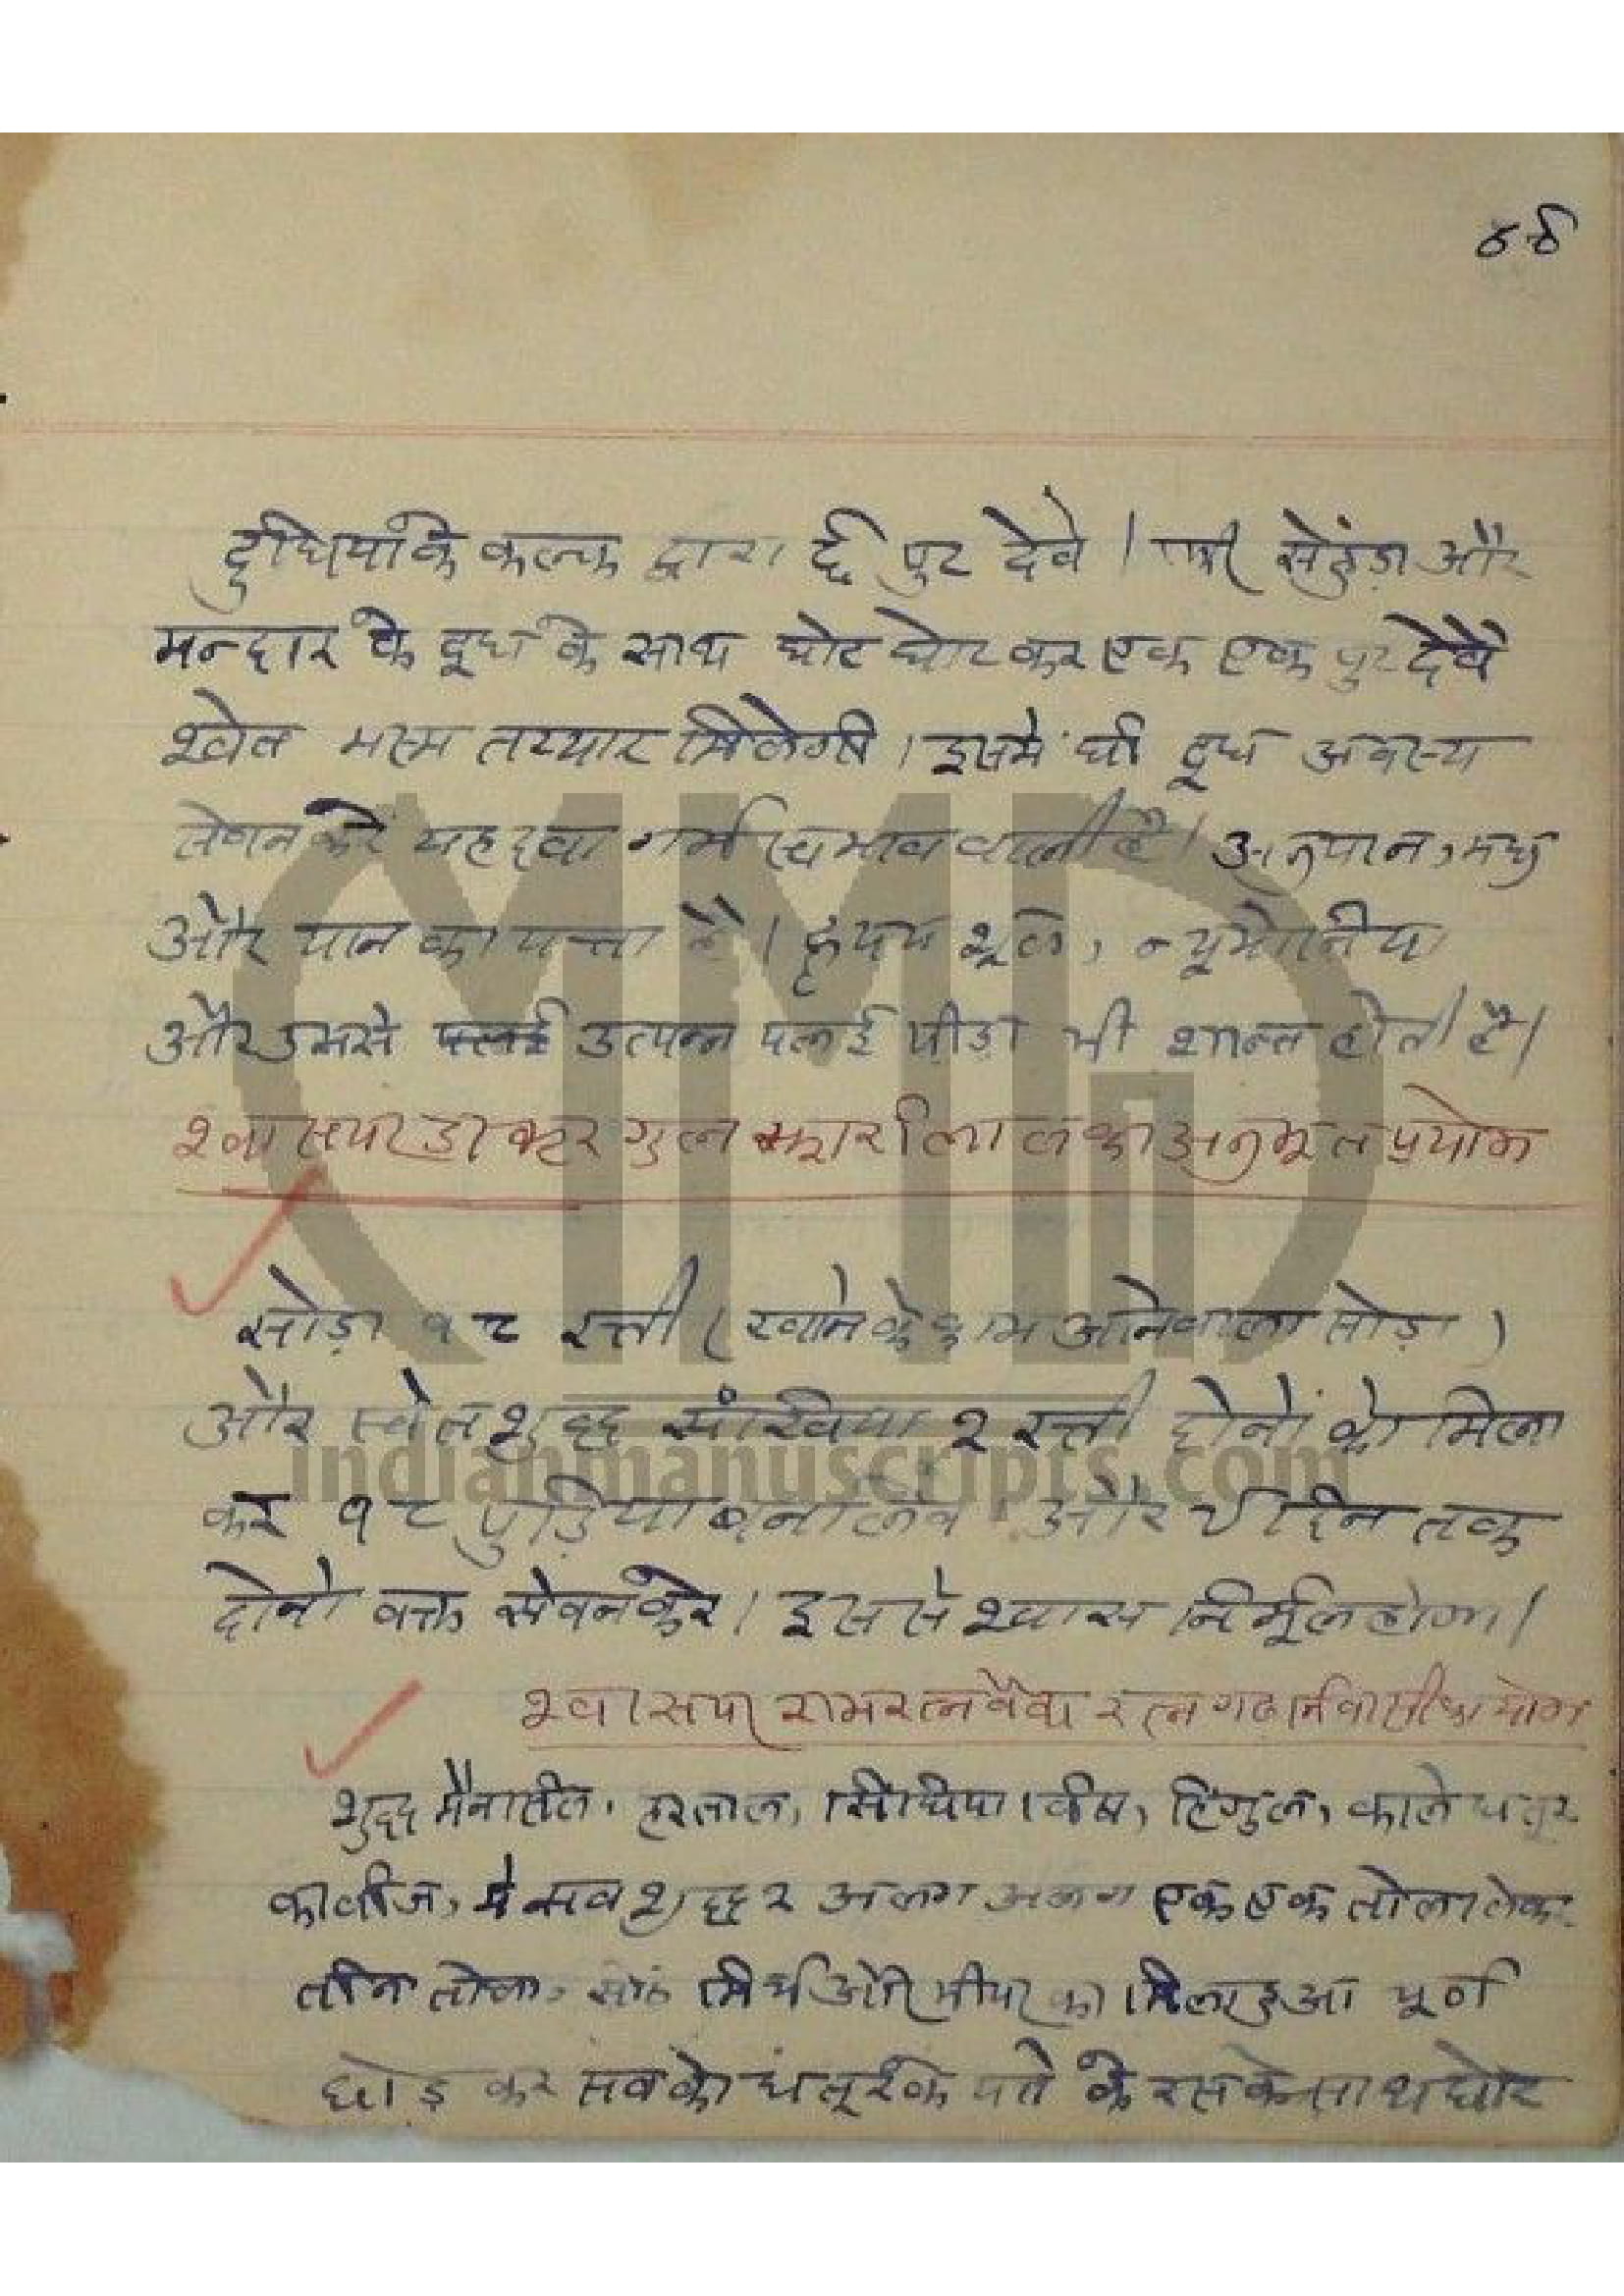 दुधियां के कल्क द्वारा ६ पुट देवे। सेहुंड़ और
मन्दार के दूध के साथ घोट घोट कर एक एक पुट देवै
श्वेत भस्म तय्यार मिलेगी। इसमे घी दूध अवस्य
सेवन करें यह दवा गर्म स्वभाव वाली है। अनुपान, मधु
और पान का पत्ता है। हृदय शूल, न्यूमोनीया
और उससे उत्पन्न पलई पीड़ा भी शान्त होती है।
श्वास पर डाक्टर गुलझारीलाल का अनुभूत प्रयोग
सोड़ा १८ रत्ती (खाने के काम आनेवाला सोड़ा)
और स्वेत शुद्ध संखिया २ रत्ती दोनों को मिला
कर १८ पुड़िया बनालेवे और दिन तक
दोनो वक्त सेवन करे। इस से श्वास निर्मूल होगा।
श्वास पर रामरत्न वैद्य रत्नगढ निवासी का योग
शुद्ध मैनासील, हरताल, सिंघिया विष, हिंगुल, काले धतूर
का बीज, ये सब शुद्ध २ अलग अलग एक एक तोला लेकर
तीन तोला, सोंठ मिर्च और पीपर का मिला हुआ चूर्ण
छोड़ कर सबको धतूर के पत्ते के रस के साथ घोट
indianmanuscripts.com